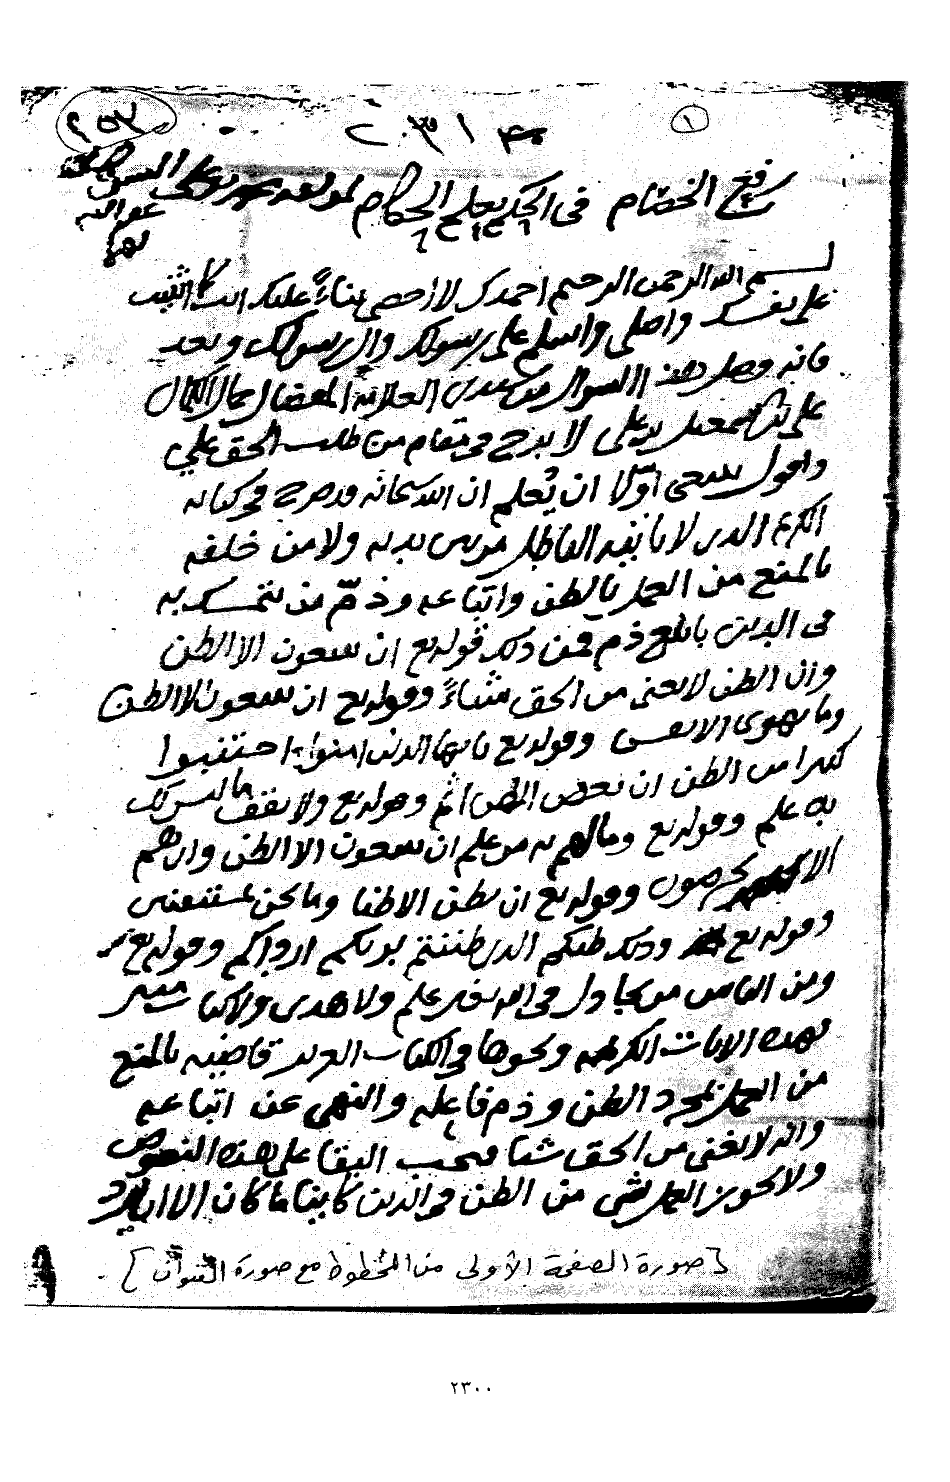 ١
رفع الخصام في الحكم بعلم الحكام لمؤلفه
عفر الله
لهما
بسم الله الرحمن الرحيم احمدك لا أحصي ثناءً عليك انت كما اثنيت
على نفسك واصلي واسلم على رسولك وال رسولك وبعد
فانه وصل هذا السوال من سيدي العلامة المفضال
على لا برح في مقام من طلب الحق علي
واقول ينبغي اوّلا ان يُعلم ان الله سبحانه قد صرح في كتابه
الكريم الذي لا ياتيه الباطل من بين يديه ولا من خلفه
بالمنع من العمل بالظن واتباعه وذمّ من يتمسك به
في الدين بابلغ ذم فمن ذلك قوله تع ان يتبعون الا الظن
وان الظن لا يغني من الحق شيئاً وقوله تع ان يتبعون الا الظن
وما تهوى الانفس وقوله تع يايها الذين امنوا اجتنبوا
كثيرا من الظن ان بعض الظن اثم وقوله تع ولا تقف ما ليس لك
به علم وقوله تع ومالهم به من علم ان يتبعون الا الظن وان هم
الا يخرصون وقوله تع ان نظن الا ظنا وما نحن بمستيقنين
وقوله تع وذلك ظنكم الذي ظننتم بربكم ارداكم وقوله تع
ومن الناس من يجادل في الله بغير علم ولا هدى ولا كتاب منير
فهذه الايات الكريمه ونحوها في الكتاب العزيز قاضيه بالمنع
من العمل بمجرد الظن وذم فاعله والنهي عن اتباعه
وانه لا يغني من الحق شيئا فيجب البقا على هذه النصوص
ولا يجوز العمل بشي من الظن في الدين كاينا ما كان الا
[صورة الصفحة الأولى من المخطوط مع صورة العنوان]
٢٣٠٠